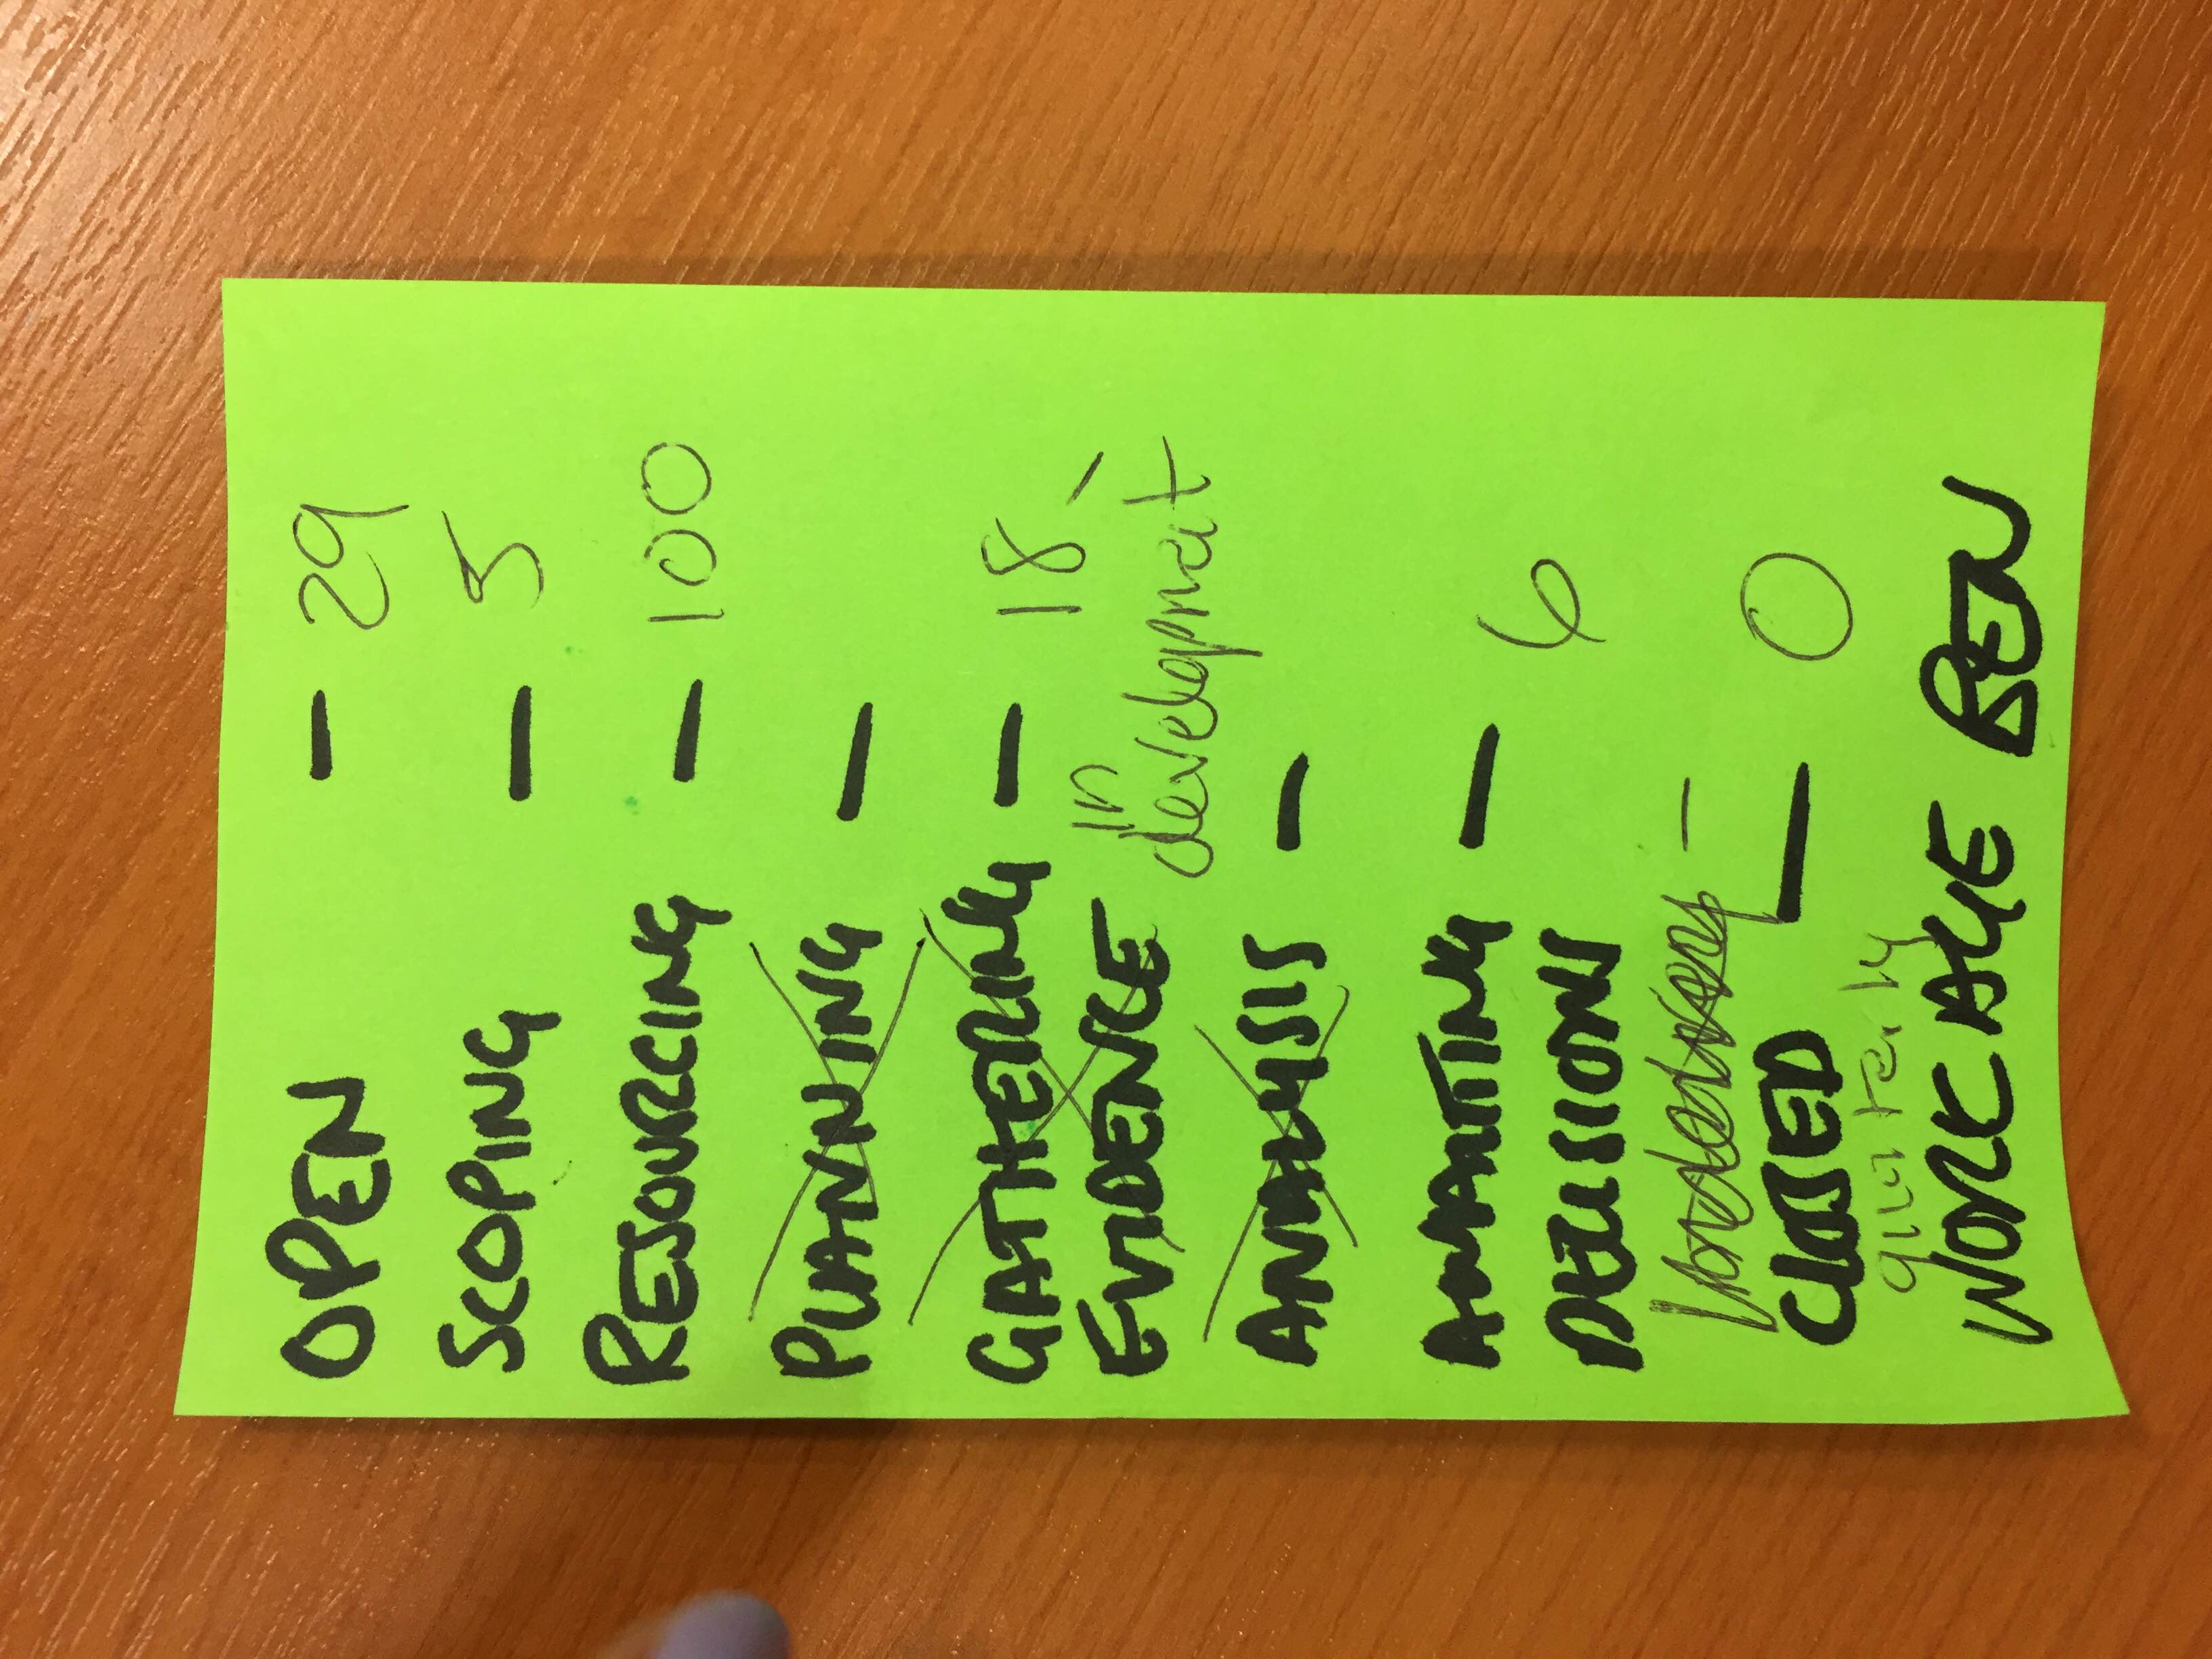 OPEN - 29
SCOPING - 5
RESOURCING - 100
PLANNING -
GATHERING - 18 -
EVIDENCE in development
ANALYSIS -
AWAITING - 6
DECISIONS
CLOSED - 0
quarterly
WORK AGE BEN